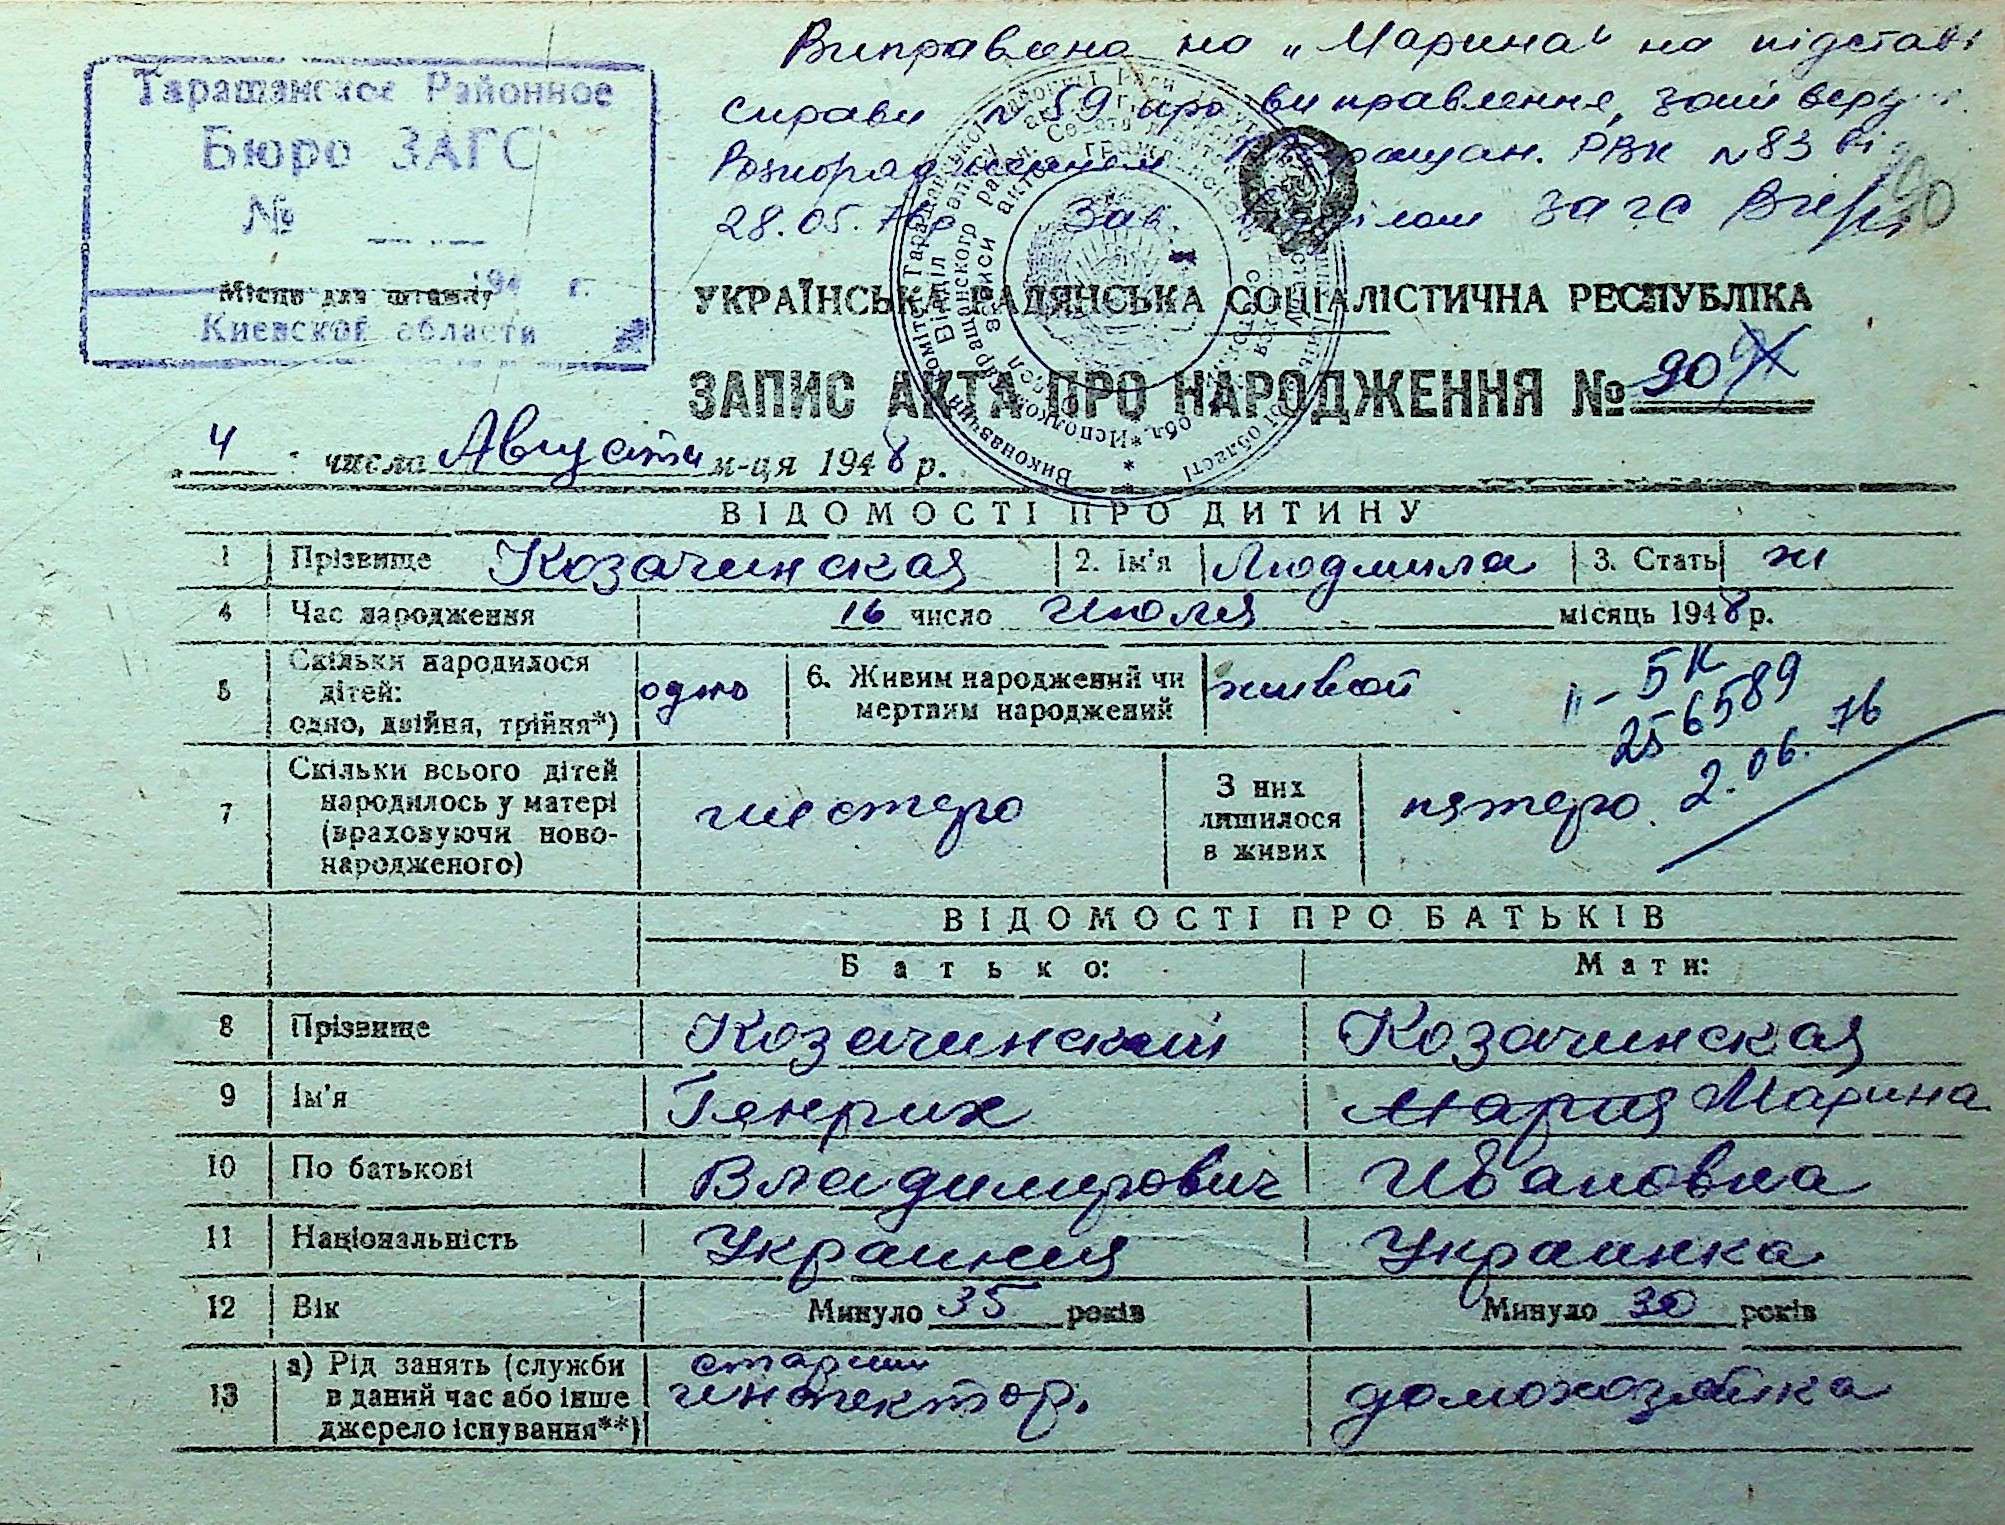 Виправлено на „Марина" на підставі
справи №59 про виправлення, затверд.
Розпорядженням Таращан. РВК №83 від
28.05. Зав. відділом загс
Таращанское Районное
Бюро ЗАГС
№
194 г.
Місце для штампу
Киевской области
90
УКРАЇНСЬКА РАДЯНСЬКА СОЦІАЛІСТИЧНА РЕСПУБЛІКА
ЗАПИС АКТА ПРО НАРОДЖЕННЯ № 90
4 числа Августа м-ця 1948 р.
ВІДОМОСТІ ПРО ДИТИНУ
1 Прізвище Козачинская 2. Ім'я Людмила 3. Стать ж
4 Час народження 16 число Июля місяць 1948 р.
5 Скільки народилося дітей: одно, двійня, трійня*) одно 6. Живим народжений чи мертвим народжений живой
II-БК
256589
2.06.76
7 Скільки всього дітей народилось у матері (враховуючи новонародженого) шестеро З них лишилося в живих пятеро
ВІДОМОСТІ ПРО БАТЬКІВ
Батько: Мати:
8 Прізвище Козачинский Козачинская
9 Ім'я Генрих Мария Марина
10 По батькові Владимирович Ивановна
11 Національність Украинец Украинка
12 Вік Минуло 35 років Минуло 30 років
13 а) Рід занять (служби в даний час або інше джерело існування**) старший инспектор. домохозяйка